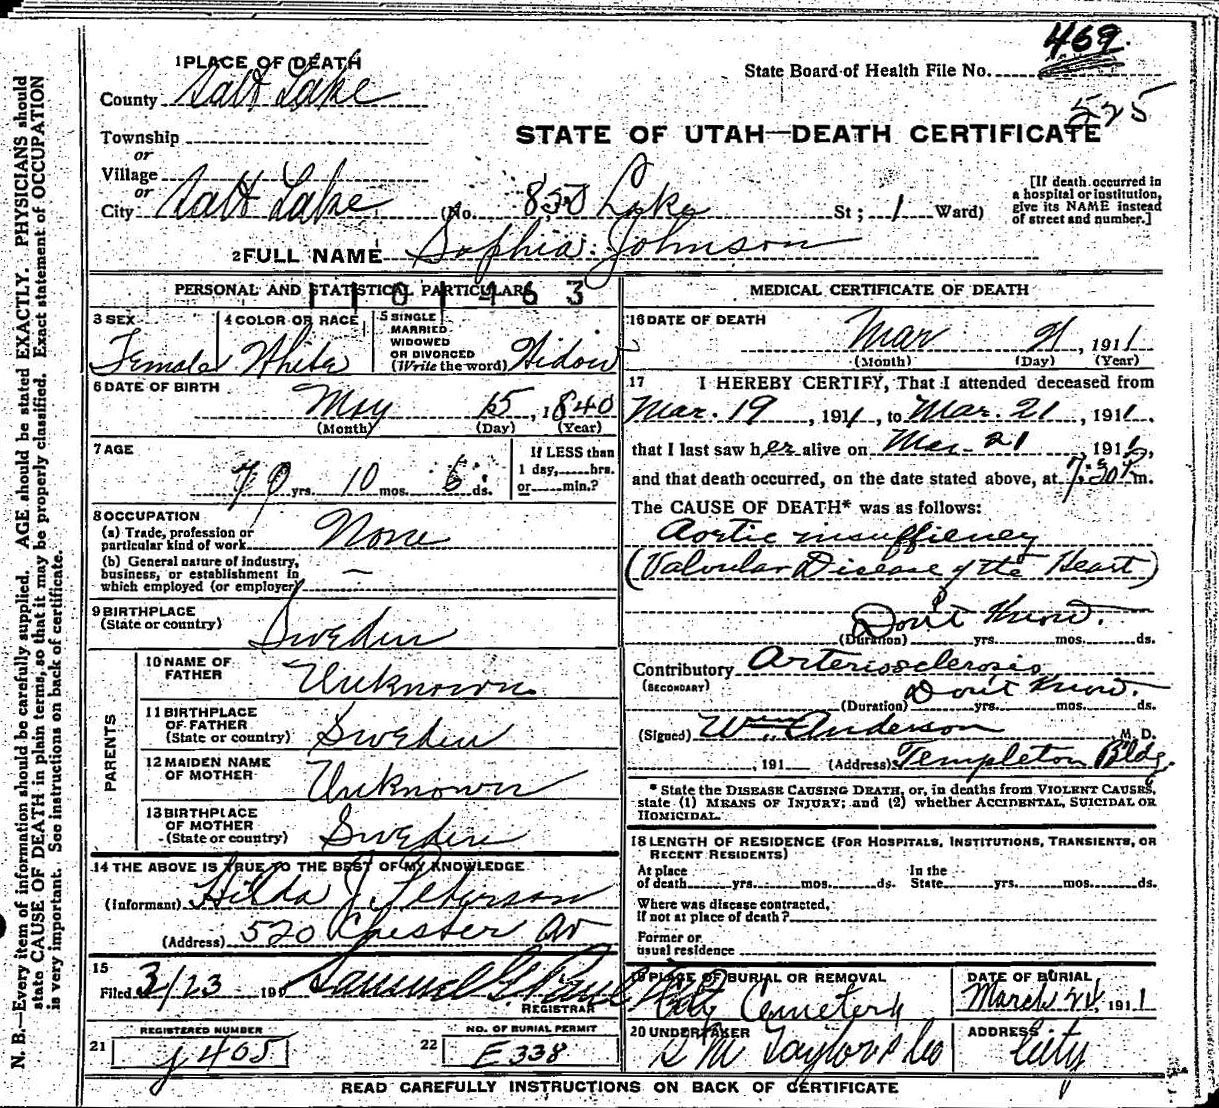 469.
1 PLACE OF DEATH
State Board of Health File No.
County Salt Lake
525
Township
STATE OF UTAH—DEATH CERTIFICATE
or
Village
or
City Salt Lake (No. 850 Lake St; 1 Ward)
[If death occurred in a hospital or institution, give its NAME instead of street and number.]
2 FULL NAME Sophia Johnson
PERSONAL AND STATISTICAL PARTICULARS
1101463
3 SEX Female
4 COLOR OR RACE White
5 SINGLE MARRIED WIDOWED OR DIVORCED (Write the word) Widow
6 DATE OF BIRTH
May 15, 1840
(Month) (Day) (Year)
7 AGE
70 yrs. 10 mos. 6 ds.
If LESS than 1 day, hrs. or min.?
8 OCCUPATION
(a) Trade, profession or particular kind of work None
(b) General nature of industry, business, or establishment in which employed (or employer) —
9 BIRTHPLACE
(State or country) Sweden
PARENTS
10 NAME OF FATHER Unknown
11 BIRTHPLACE OF FATHER (State or country) Sweden
12 MAIDEN NAME OF MOTHER Unknown
13 BIRTHPLACE OF MOTHER (State or country) Sweden
14 THE ABOVE IS TRUE TO THE BEST OF MY KNOWLEDGE
(Informant) Hilda J. Peterson
(Address) 520 Chester Av
15
Filed 3/23 191 Samuel G. Paul
REGISTRAR
REGISTERED NUMBER
21 J405
NO. OF BURIAL PERMIT
22 E338
MEDICAL CERTIFICATE OF DEATH
16 DATE OF DEATH
Mar 21, 1911
(Month) (Day) (Year)
17 I HEREBY CERTIFY, That I attended deceased from
Mar. 19, 1911, to Mar. 21, 1911,
that I last saw her alive on Mar. 21 1911,
and that death occurred, on the date stated above, at 7:30 P m.
The CAUSE OF DEATH* was as follows:
Aortic insuffieney
(Valvular Disease of the Heart)
Don't Know.
(Duration) yrs. mos. ds.
Contributory Arteriosclerosis
(SECONDARY) Don't Know.
(Duration) yrs. mos. ds.
(Signed) Wm. Anderson M. D.
, 191 (Address) Templeton Bldg.
* State the DISEASE CAUSING DEATH, or, in deaths from VIOLENT CAUSES,
state (1) MEANS OF INJURY; and (2) whether ACCIDENTAL, SUICIDAL OR
HOMICIDAL.
18 LENGTH OF RESIDENCE (FOR HOSPITALS, INSTITUTIONS, TRANSIENTS, OR
RECENT RESIDENTS)
At place of death yrs. mos. ds. In the State yrs. mos. ds.
Where was disease contracted,
if not at place of death?
Former or
usual residence
19 PLACE OF BURIAL OR REMOVAL
City Cemetery
DATE OF BURIAL
March 24, 1911
20 UNDERTAKER
S M Taylor & Co
ADDRESS
City
READ CAREFULLY INSTRUCTIONS ON BACK OF CERTIFICATE
N. B.—Every item of information should be carefully supplied. AGE should be stated EXACTLY. PHYSICIANS should
state CAUSE OF DEATH in plain terms, so that it may be properly classified. Exact statement of OCCUPATION
is very important. See instructions on back of certificate.